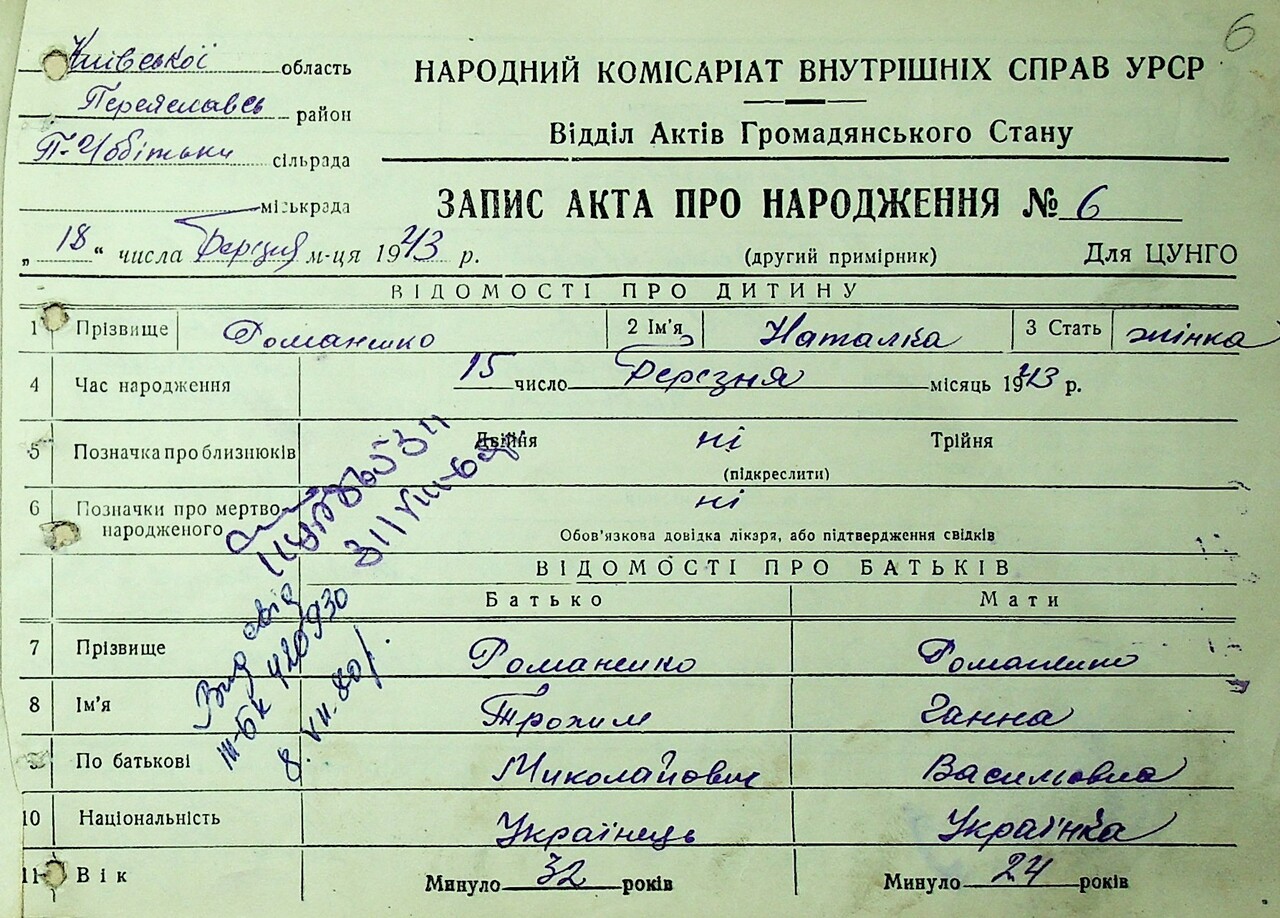 6
Київської область
Переяславсь район
П-Чобітьки сільрада
міськрада
НАРОДНИЙ КОМІСАРІАТ ВНУТРІШНІХ СПРАВ УРСР
Відділ Актів Громадянського Стану
ЗАПИС АКТА ПРО НАРОДЖЕННЯ № 6
„18“ числа березня м-ця 1943 р.
(другий примірник) Для ЦУНГО
ВІДОМОСТІ ПРО ДИТИНУ
1 Прізвище Романенко 2 Ім'я Наталка 3 Стать жінка
4 Час народження 15 число березня місяць 1943 р.
5 Позначка про близнюків Двійня ні Трійня
(підкреслити)
6 Позначки про мертво-
народженого ні
Обов'язкова довідка лікаря, або підтвердження свідків
ВІДОМОСТІ ПРО БАТЬКІВ
Батько Мати
7 Прізвище Романенко Романенко
8 Ім'я Трохим Ганна
9 По батькові Миколайович Василівна
10 Національність Українець Українка
11 Вік Минуло 32 років Минуло 24 років
Вид свід
III-БК 420930
8.VII.80р.